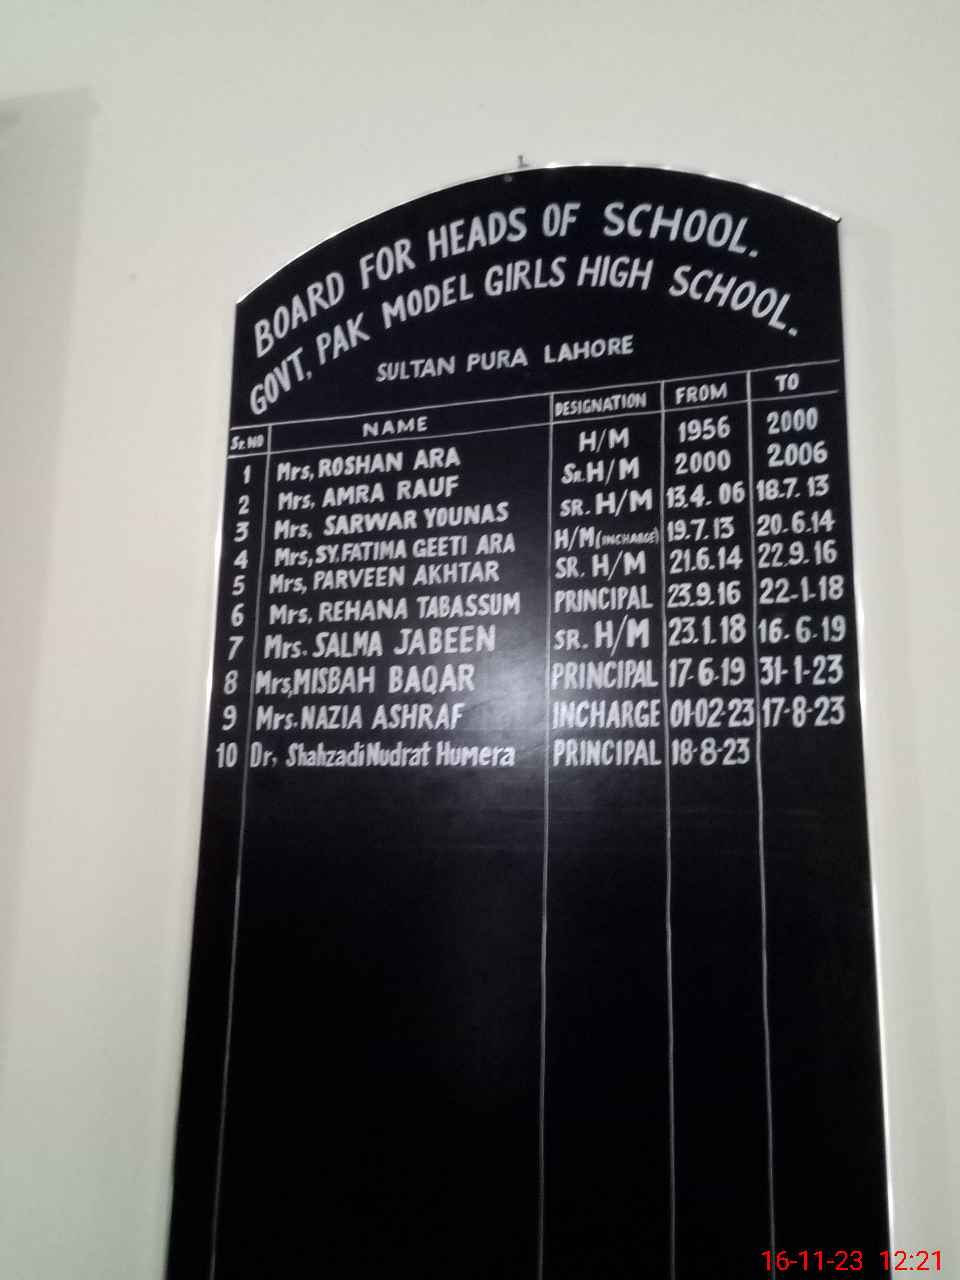 BOARD FOR HEADS OF SCHOOL.
GOVT, PAK MODEL GIRLS HIGH SCHOOL.
SULTAN PURA LAHORE
Sr.NO NAME DESIGNATION FROM TO
1 Mrs, ROSHAN ARA H/M 1956 2000
2 Mrs, AMRA RAUF Sr.H/M 2000 2006
3 Mrs, SARWAR YOUNAS SR. H/M 13.4.06 18.7.13
4 Mrs, SY.FATIMA GEETI ARA H/M(INCHARGE) 19.7.13 20.6.14
5 Mrs, PARVEEN AKHTAR SR. H/M 21.6.14 22.9.16
6 Mrs, REHANA TABASSUM PRINCIPAL 23.9.16 22-1-18
7 Mrs. SALMA JABEEN SR. H/M 23.1.18 16-6-19
8 Mrs,MISBAH BAQAR PRINCIPAL 17-6-19 31-1-23
9 Mrs. NAZIA ASHRAF INCHARGE 01-02-23 17-8-23
10 Dr, Shahzadi Nudrat Humera PRINCIPAL 18-8-23
16-11-23 12:21